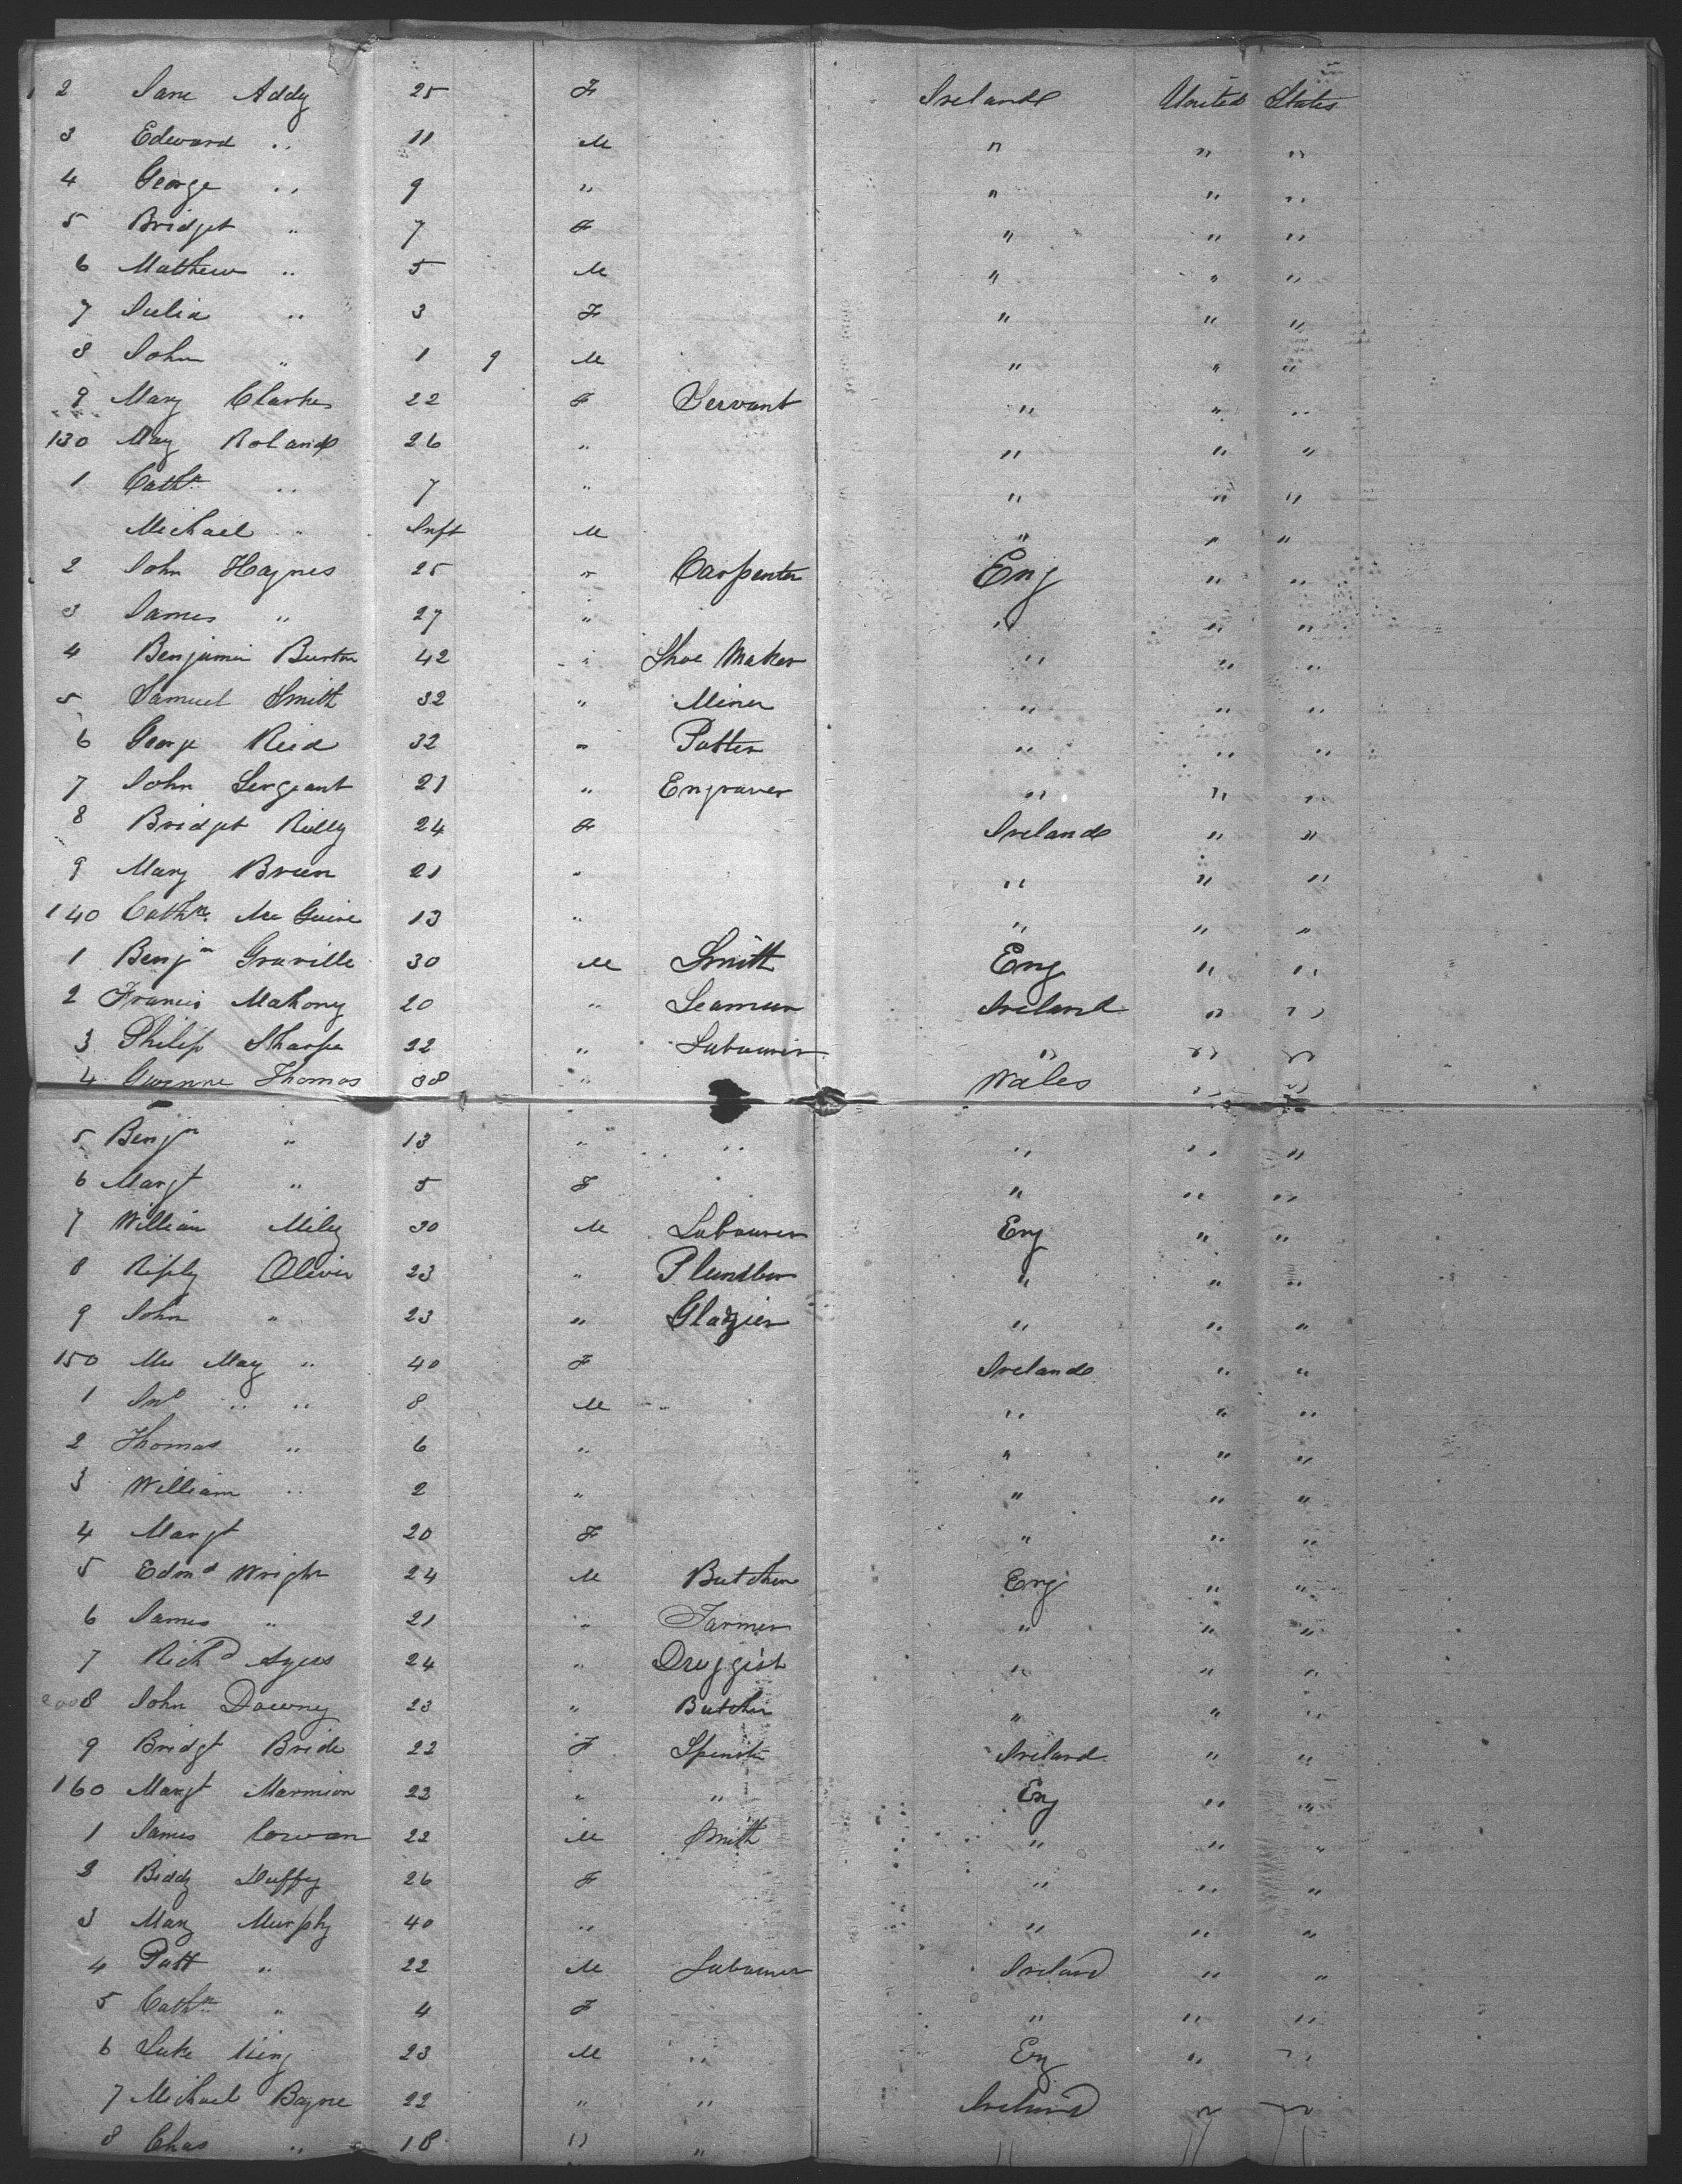 2 Jane Addy 25 F Ireland United States
3 Edward " 11 M " " "
4 George " 9 " " " "
5 Bridget " 7 F " " "
6 Mathew " 5 M " " "
7 Julia " 3 F " " "
8 John " 1 9 M " " "
9 Mary Clarke 22 F Servant " " "
130 May Roland 26 " " " "
1 Cathn " 7 " " " "
Michael " Inft M " " "
2 John Haynes 25 " Carpenter Eng " "
3 James " 27 " " " "
4 Benjamin Burton 42 " Shoe Maker " " "
5 Samuel Smith 32 " Miner " " "
6 George Reid 32 " Potter " " "
7 John Sergeant 21 " Engraver " " "
8 Bridget Rielly 24 F Ireland " "
9 Mary Brien 21 " " " "
140 Cathne Mc Guire 13 " " " "
1 Benjn Graville 30 M Smith Eng " "
2 Francis Mahony 20 " Seaman Ireland " "
3 Philip Sharpe 22 " Labourer " " "
4 Gwynne Thomas 38 " Wales " "
5 Benjn " 13 " " " " "
6 Margt " 5 F " " "
7 William Miley 30 M Labourer Eng " "
8 Riply Oliver 23 " Plumber " " "
9 John " 23 " Glazier " " "
150 Mc May " 40 F Ireland " "
1 Jno " " 8 M " " "
2 Thomas " 6 " " " "
3 William " 2 " " " "
4 Margt 20 F " " "
5 Edmd Wright 24 M Butcher Eng " "
6 James " 21 " Farmer " " "
7 Richd Ayers 24 " Druggist " " "
8 John Downy 23 " Butcher " " "
9 Bridgt Bride 22 F Spinstr Ireland " "
160 Margt Marmion 22 " " Eng " "
1 James Cowan 22 M Smith " " "
2 Biddy Duffy 26 F " " "
3 Mary Murphy 40 " " " "
4 Patt " 22 M Labourer Ireland " "
5 Cathn " 4 F " " "
6 Luke King 23 M " Eng " "
7 Michael Bayne 22 " " Ireland " "
8 Chas " 18 " " " "